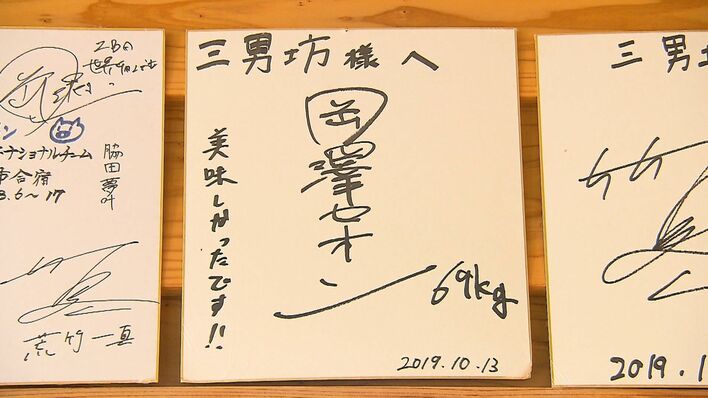 世界
ナショナルチーム
合宿
6~17
脇田夢叶
荒竹一真
三男坊様へ
岡澤セオン
美味しかったです!!
69kg
2019.10.13
三男
2019.1